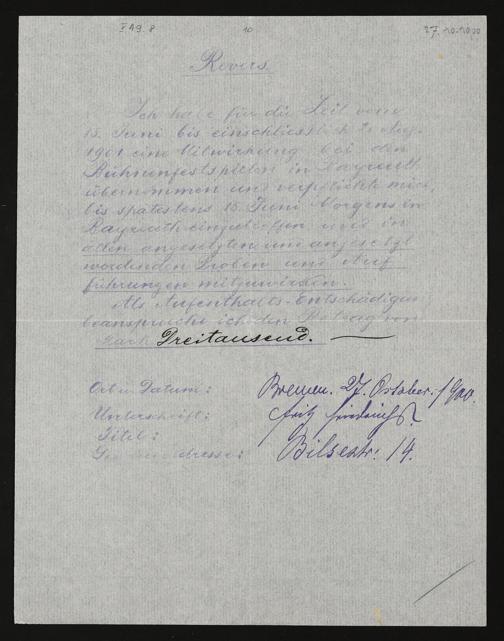 10
27.10.1900
Revers.
Ich habe für die Zeit vom
15. Juni bis einschliesslich Aug.
1901 eine Mitwirkung bei den
Bühnenfestspielen in Bayreuth
übernommen und verpflichte mich,
bis spätestens 15. Juni Morgens in
Bayreuth einzutreffen und in
allen angesetzten und
werdenden Proben und Auf-
führungen mitzuwirken.
Als Aufenthalts-Entschädigung
beanspruche ich den Betrag von
Mark Dreitausend.
Ort u. Datum: Bremen. 27. October. 1900.
Unterschrift: Fritz Friedrichs.
Titel:
adresse: 14.